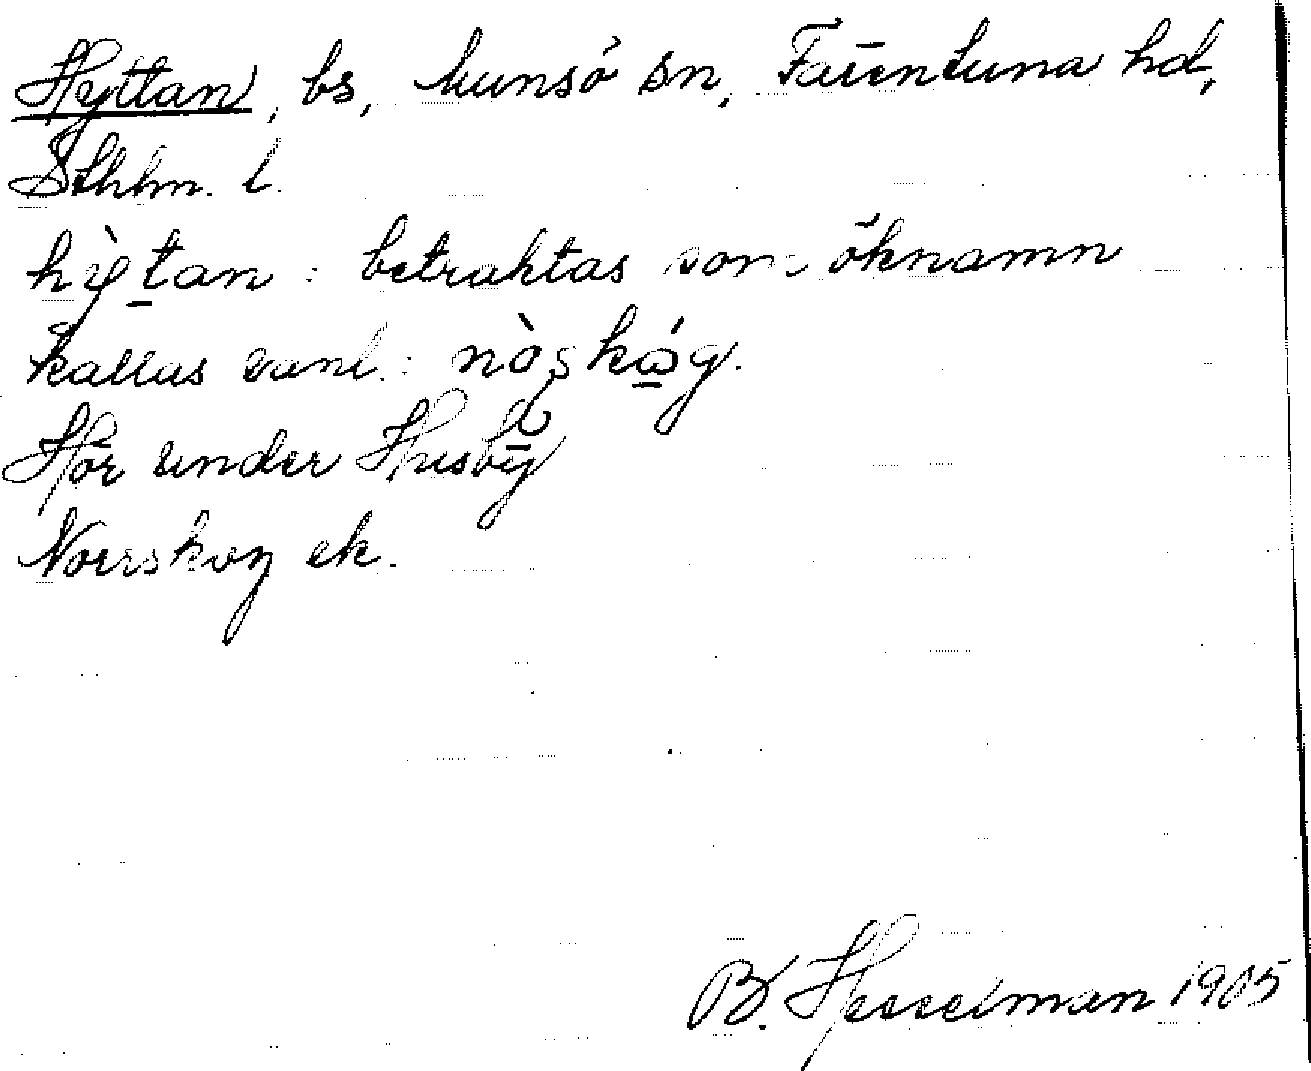 Hyttan, bs, Munsö sn, Färentuna hd,
Sthlm. l.
hỳtan : betraktas som öknamn
kallas vanl.: nòskóg.
Hör under Husby
Norrskog ek.
B. Hesselman 1905